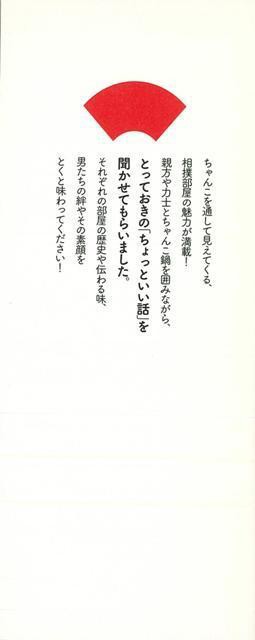 ちゃんこを通して見えてくる、
相撲部屋の魅力が満載！
親方や力士とちゃんこ鍋を囲みながら、
とっておきの「ちょっといい話」を
聞かせてもらいました。
それぞれの部屋の歴史や伝わる味、
男たちの絆やその素顔を
とくと味わってください！